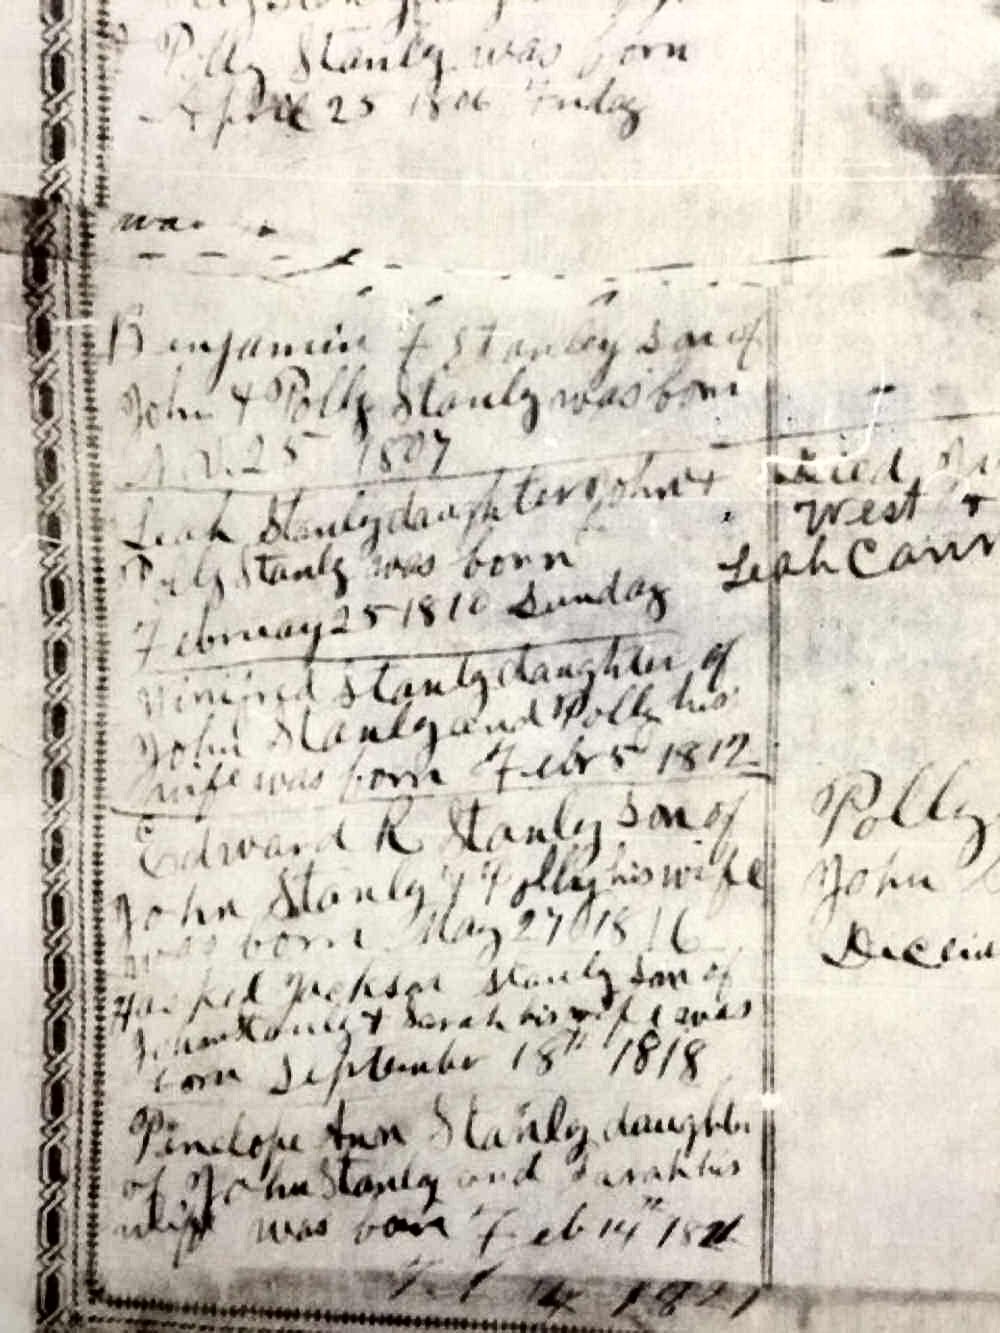 Polly Stanly was born
April 25 1806 Friday
was
Benjamin F Stanley son of
John & Polly Stanly was born
Nov. 25 1807
Leah Stanly daughter John &
Polly Stanly was born
February 25 1810 Sunday
Winifred Stanly daughter of
John Stanly and Polly his
wife was born Febr 5 1812
Edward R Stanly son of
John Stanly & Polly his wife
was born May 27 1816
Jackson Stanly son of
John Stanly & Sarah his wife was
born September 18th 1818
Penelope Ann Stanly daughter
of John Stanly and Sarah his
wife was born Feb 14th
14 1821
Died
West &
Leah
Polly
John